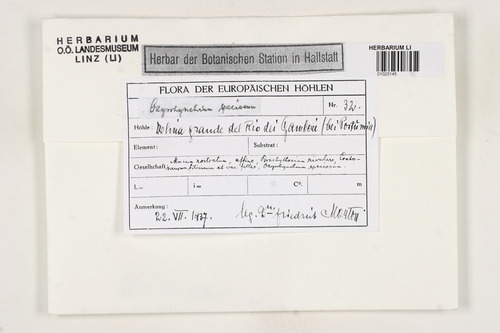 HERBARIUM
O.Ö. LANDESMUSEUM
LINZ (LI)
Herbar der Botanischen Station in Hallstatt
HERBARIUM LI
01023145
FLORA DER EUROPÄISCHEN HÖHLEN
Oxyrrhynchium speciosum
Nr. 32.
Höhle: Dolina grande del Rio dei Gamberi (bei Postumia)
Element:
Substrat:
Gesellschaft: Mnium rostratum, affine, Brachythecium rivulare,
L= i= C° m
Anmerkung:
22. VII. 1937. leg. Dr. Friedrich Morton